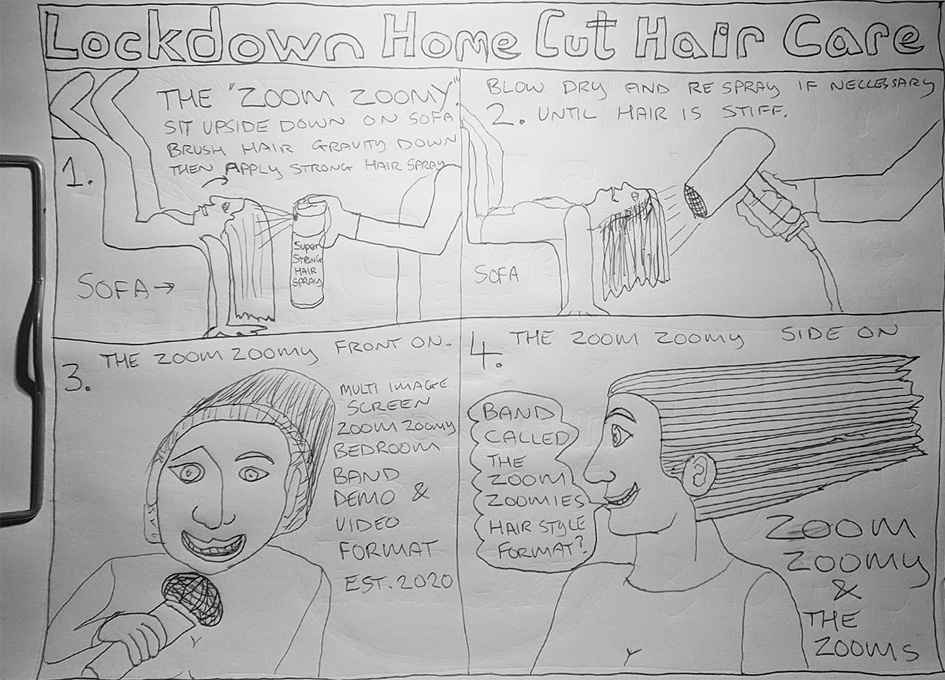 Lockdown Home Cut Hair Care
THE "ZOOM ZOOMY".
SIT UPSIDE DOWN ON SOFA
BRUSH HAIR GRAVITY DOWN
THEN APPLY STRONG HAIR SPRAY
1.
Super
STRONG
HAIR
SPRAY
SOFA→
BLOW DRY AND RE SPRAY IF NECCESSARY
2. UNTIL HAIR IS STIFF.
SOFA
3. THE ZOOM ZOOMY FRONT ON.
MULTI IMAGE
SCREEN
ZOOM ZOOMY
BEDROOM
BAND
DEMO &
VIDEO
FORMAT
EST. 2020
4. THE ZOOM ZOOMY SIDE ON
BAND
CALLED
THE
ZOOM
ZOOMIES
HAIR STYLE
FORMAT?
ZOOM
ZOOMY
&
THE
ZOOMS